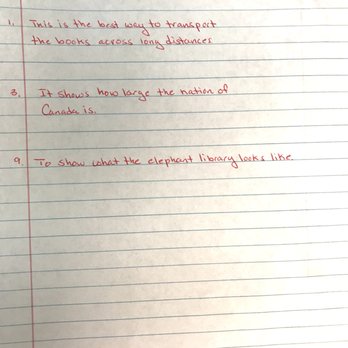 1. This is the best way to transport
the books across long distances
3. It shows how large the nation of
Canada is.
9. To show what the elephant library looks like.